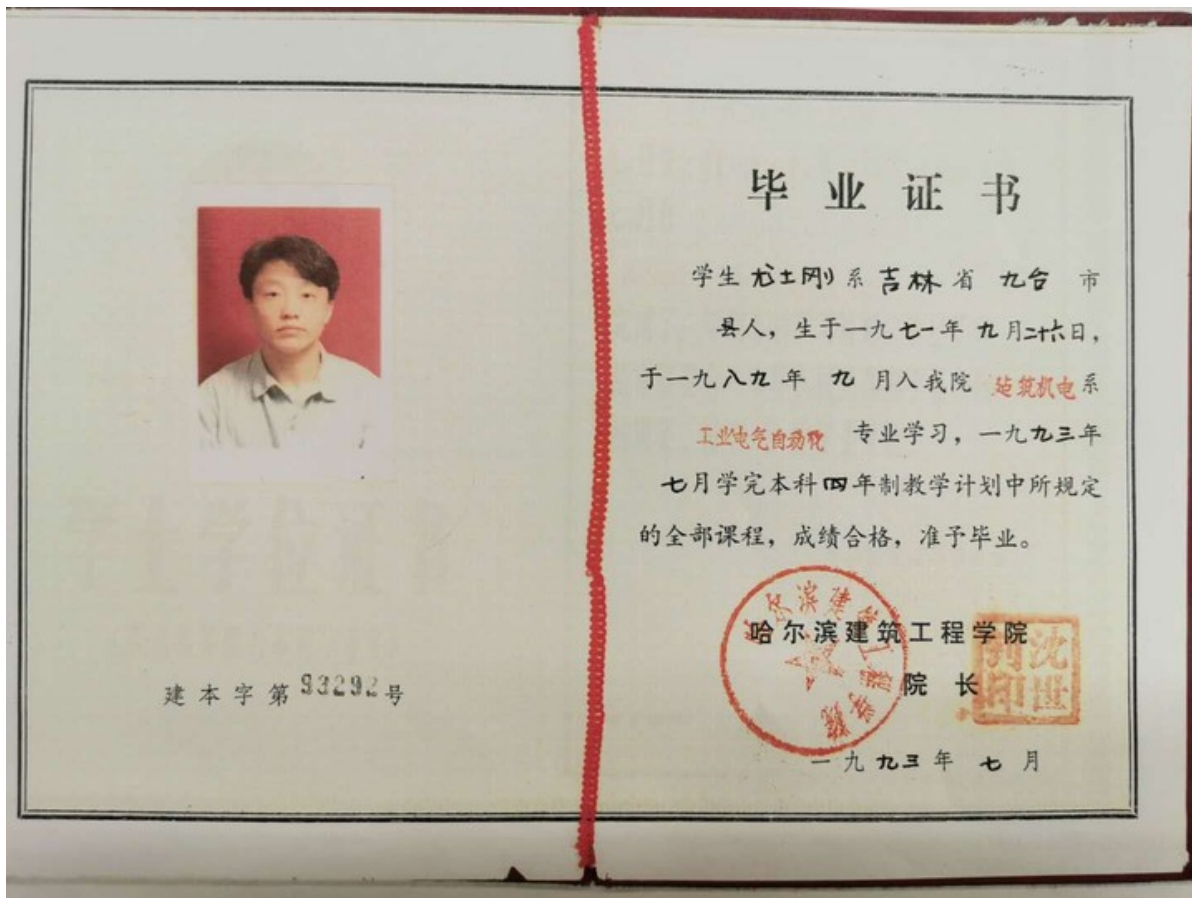 建本字第93292号
毕业证书
学生尤士刚系吉林省九台市
县人，生于一九七一年九月二十六日，
于一九八九年九月入我院建筑机电系
工业电气自动化专业学习，一九九三年
七月学完本科四年制教学计划中所规定
的全部课程，成绩合格，准予毕业。
哈尔滨建筑工程学院
哈尔滨建筑工程学院
院长
沈世钊印
一九九三年七月